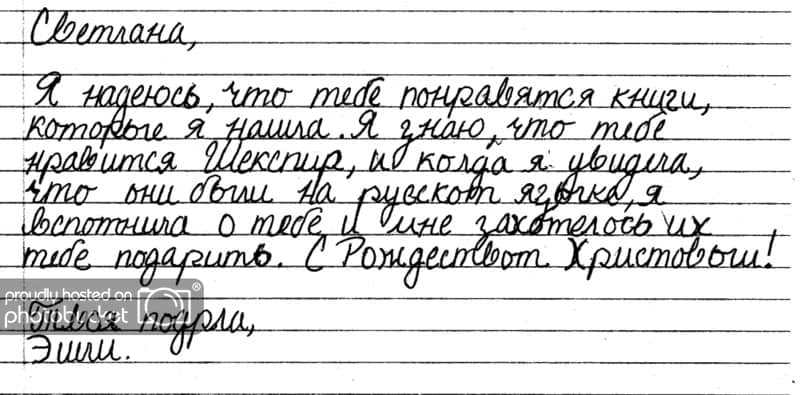 Светлана,
Я надеюсь, что тебе понравятся книги,
которые я нашла. Я знаю, что тебе
нравится Шекспир, и когда я увидела,
что они были на русском языке, я
вспомнила о тебе и мне захотелось их
тебе подарить. С Рождеством Христовым!
proudly hosted on
photobucket
Твоя подруга,
Эшли.